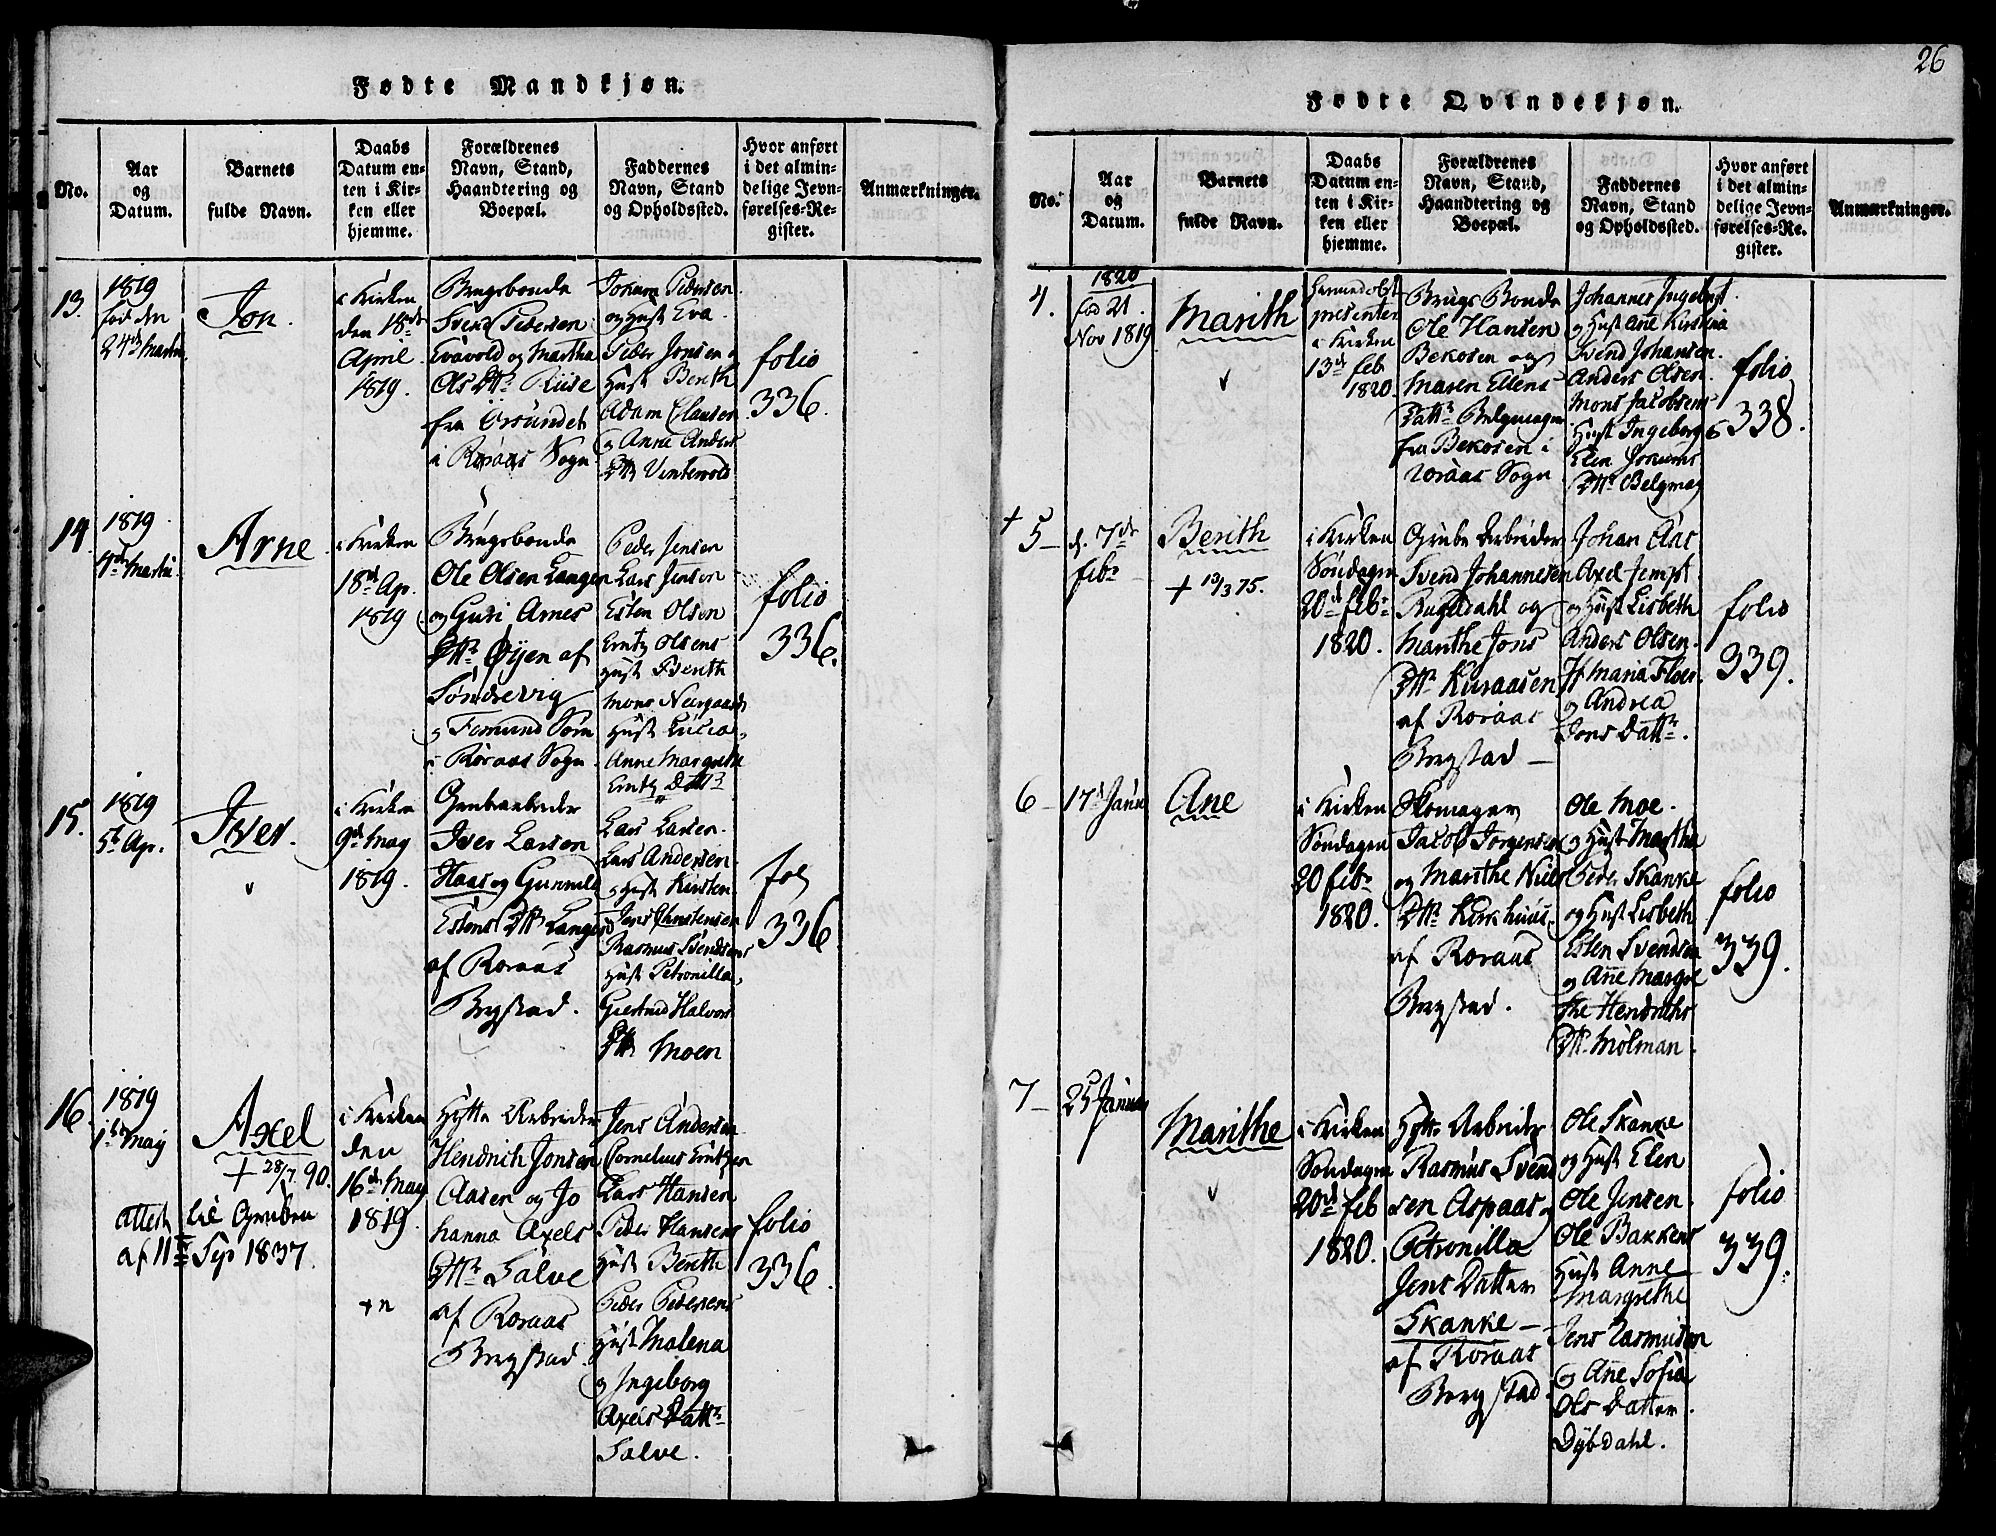 26
Fødte Mandkjøn.
No.
Aar
og
Datum.
Barnets
fulde Navn.
Daabs
Datum en-
ten i Kir-
ken eller
hjemme.
Forældrenes
Navn, Stand,
Haandtering og
Boepæl.
Faddernes
Navn, Stand
og Opholdssted.
Hvor anført
i det almin-
delige Jevn-
førelses-Re-
gister.
Anmærkninger.
13.
1819
fød den
24de Martii
Jon.
i Kirken
den 18de
April
1819.
Brugsbonde
Svend Pedersen
Evavold og Martha
Ols Dttr Riise
fra Örsundet
i Röraas Sogn
Johan Pedersen
og Hust Eva
Peder Jonsen og
Hust Berith
Adam Clausen
og Anne Anders
Dttr Vintervold
folio
336.
14.
1819
4de Martii.
Arne
i Kirken
18de Ap.
1819.
Brugsbonde
Ole Olsen Langen
og Guri Arnes
Dttr Öyen af
Söndrevig
i Röraas Sogn
Peder Jensen
Lars Jensen
Esten Olsen
Erntz Olsens
Hust Berith
Mons Neergaards
Hust Lucia,
Anne Margrethe
Erntz Dattr
folio
336.
15.
1819
5te Ap.
Iver.
v
i Kirken
9de May
1819.
Grubearbeider
Iver Larsen
Haas og Gunnild
Estens Dttr Langen
af Röraas
Bergstad.
Lars Larsen.
Lars Andersen
og Hust Kirsten
Jens Christensen
Rasmus Svendsens
Hust Petronilla,
Giertrud Halvors
Dttr Moen
fol
336
16.
1819
1ste May
Axel
+ 28/7 90.
Attest til Gruben
af 11te Sep 1837.
i Kirken
den
16de May
1819.
+n
Hytte Arbeider
Hendrich Jonsen
Aasen og Jo
hanna Axels
Dttr Salve
af Röraas
Bergstad
Jens Andersen
Cornelius Erntzen
Lars Hansen
Peder Hansens
Hust Berith
Peder Pedersens
Hust Malena
og Ingeborg
Axels Dattr
Salve.
folio
336.
Fødte Qvindekjøn.
No.
Aar
og
Datum.
Barnets
fulde Navn.
Daabs
Datum en-
ten i Kir-
ken eller
hjemme.
Forældrenes
Navn, Stand,
Haandtering og
Boepæl.
Faddernes
Navn, Stand
og Opholdssted.
Hvor anført
i det almin-
delige Jevn-
førelses-Re-
gister.
Anmærkninger.
4.
1820
fød 21.
Nov 1819.
Marith
v
i Kirken
13de feb
1820.
Brugs Bonde
Ole Hansen
Bekosen og
Maren Ellens
Dattr Belgmager
fra Bekosen i
Röraas Sogn
og Hust Ane Kirstina
Svend Johansen.
Anders Olsen.
Mons Jacobsens
Hust Ingeborg
Elen
Dttr Belgmag
folio
338.
+ 5
d. 7de
febr
Berith
+ 13/3 75.
i Kirken
Söndagen
20de febr
1820.
Grube Arbeider
Svend Johannesen
Rugeldahl og
Marithe Jons
Dttr Kuraasen
af Röraas
Bergstad
Johan Aas
Axel Jempt
og Hust Lisbeth
Anders Olsen.
Jf Maria Floer
og Andrea
Jons Dattr.
folio
339.
6
17de Janu
Ane
i Kirken
Söndagen
20 febr
1820.
Skomager
Jacob Jörgensen
og Marithe Niels
Dttr Kirkhuus
af Röraas
Bergstad.
Ole Moe.
og Hust Martha
Peder Skanke
og Hust Lisbeth
Esten Svendsen
og Ane Margre
the Hendrichs
Dttr Mölman
folio
339.
7
25 Januar
Marithe
v
i Kirken
Söndagen
20de feb
1820.
Hytte Arbeider
Rasmus Svend
sen Aspaas og
Petronilla
Jens Datter
Skanke
af Röraas
Bergstad
Ole Skanke
og Hust Elen
Ole Jensen
Ole Bakkens
Hust Anne
Margrethe
Jens Rasmusen
og Ane Sofia
Ols Datter.
Dybdahl.
folio
339.